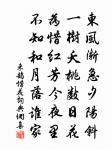 東風漸急夕陽斜
一樹夭桃數日花
為惜紅芳今夜裏
不知和月落誰家
來鵠惜花詞典網集